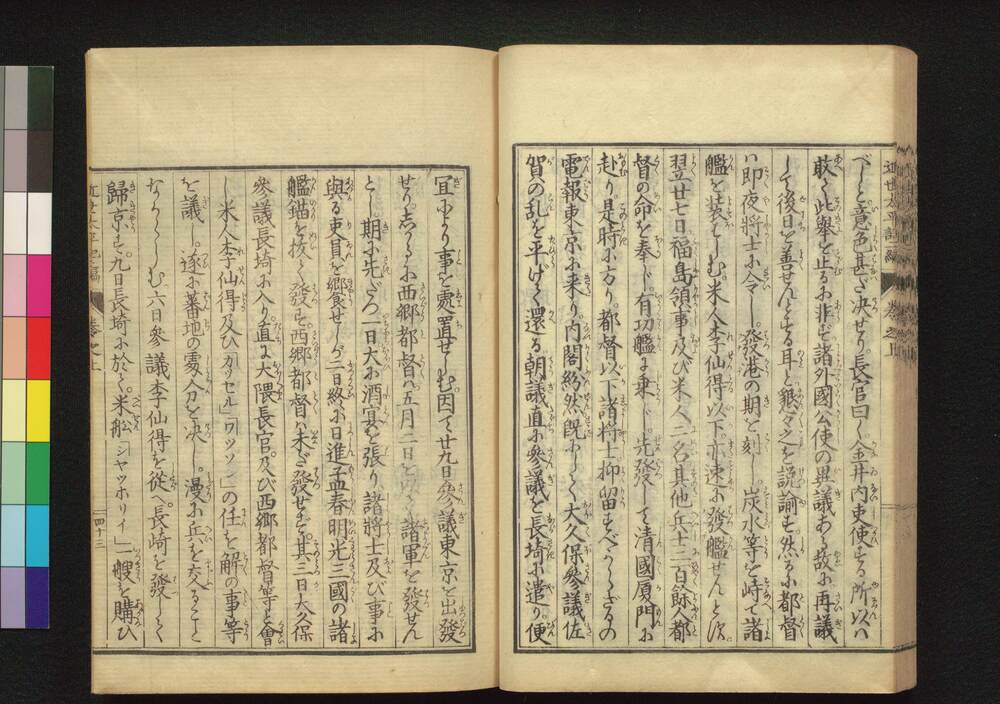 近世太平記二編 卷之上
べしと意色甚だ决せり。長官曰く金井内吏使する所以ハ
敢て此舉を止るに非ず諸外國公使の異議あり故に再議
して後日を善せんとする耳と懇々之を説諭す然るに都督
ハ即夜將士に令し。發港の期を刻し。炭水等を峙て諸
艦を装はしむ。米人李仙得以下。亦速に發艦せんと次
翌廿七日。福島領事及び米人二名其他兵士二百餘人都
督の命を奉じ。有功艦に乗じ。先發して清國厦門に
赴り是時に方り。都督以下諸將士抑留すべからざるの
電報東京に来り。内閣紛然既にして大久保參議佐
賀の乱を平げて還る朝議直に參議を長埼に遣り。便
宜により事を處置せしむ。因て廿九日參議東京を出發
せり。しかるに西郷都督ハ五月二日を以て諸軍を發せん
とし。期に先だつ一日大に酒宴を張り。諸將士及び事に
與る吏員を饗せしが二日終に日進孟春明光三國の諸
艦錨を抜て發す。西郷都督ハ未だ發せず。其三日大久保
參議長埼に入り。直に大隈長官。及び西郷都督等と會
し米人李仙得及び「カツセル」「ワツソン」の任を解の事等
を議し。遂に蕃地の處分を决し。漫に兵を交ること
なからしむ六日參議李仙得を從へ。長崎を發して
歸京す。九日長埼に於て。米舩「シヤツホリイ」一艘を購ひ
近世太平記二編 卷之上 四十三